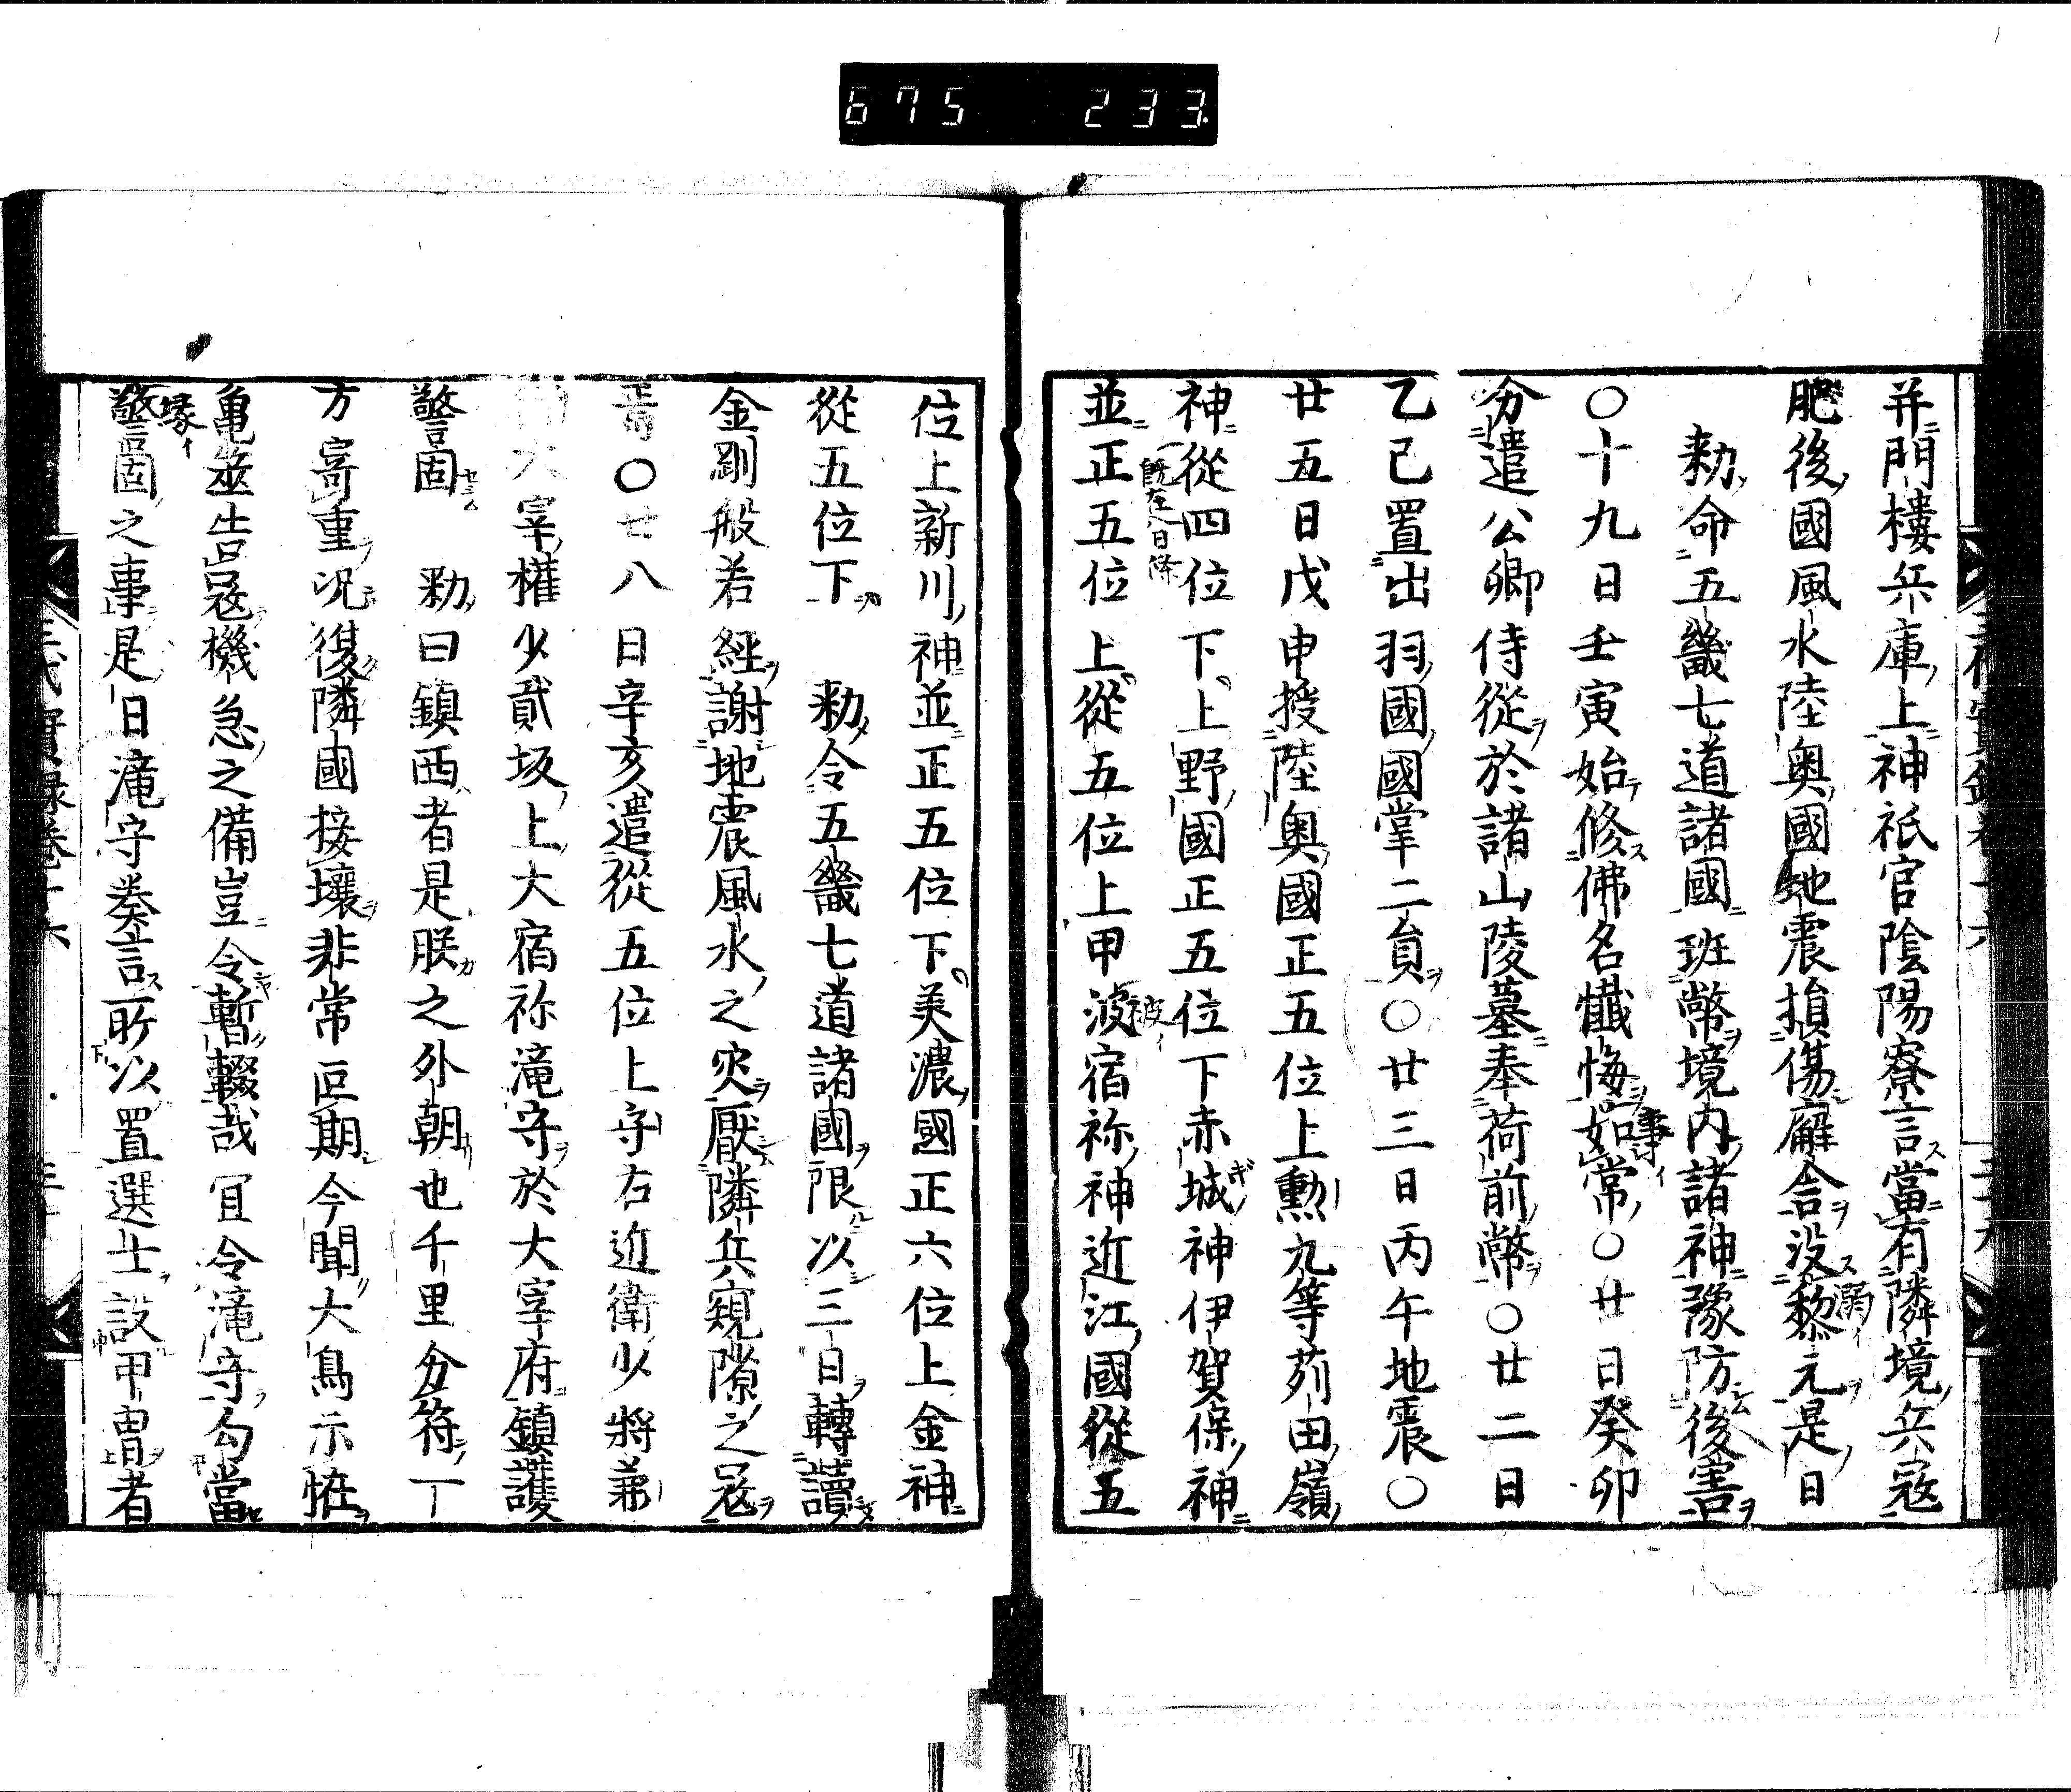 675 233
并門樓兵庫上神祇官陰陽寮言當有隣境兵寇
肥後國風水陸奥國地震損傷廨舎没黎元是日
勅命五畿七道諸國班幣境内諸神豫防後害
〇十九日壬寅始修佛名懺悔如常〇廿日癸卯
分遣公卿侍從於諸山陵墓奉荷前幣〇廿二日
乙巳置出羽國國掌二員〇廿三日丙午地震〇
廿五日戊申授陸奥國正五位上勲九等苅田嶺
神從四位下上野國正五位下赤城神伊賀保神
並正五位上從五位上甲波宿祢神近江國從五
位上新川神並正五位下美濃國正六位上金神
從五位下 勅令五畿七道諸國限以三日轉讀
金剛般若經謝地震風水之灾厭隣兵窺隙之寇
焉〇廿八日辛亥遣從五位上守右近衛少將兼
大宰權少貳坂上大宿祢滝守於大宰府鎮護
警固 勅曰鎮西者是朕之外朝也千里分符一
方寄重況復隣國接壤非常叵期今聞大鳥示恠
亀筮告寇機急之備豈令暫輟哉冝令滝守勾當
警固之事是日滝守奏言所以置選士設甲冑者